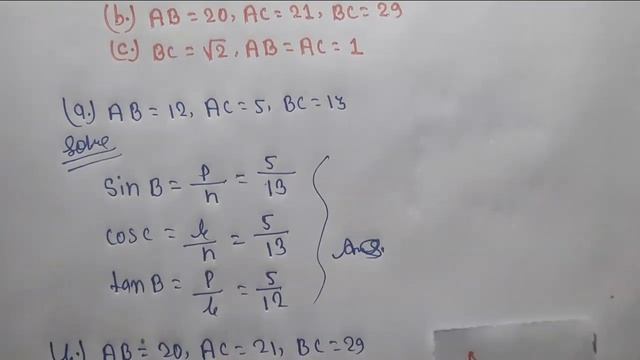 (b.) AB = 20, AC = 21, BC = 29
(c.) BC = √2, AB = AC = 1
(a.) AB = 12, AC = 5, BC = 13
Solve
sin B = p/h = 5/13
cos c = b/h = 5/13
tan B = p/b = 5/12
Ans.
(b.) AB = 20, AC = 21, BC = 29
B